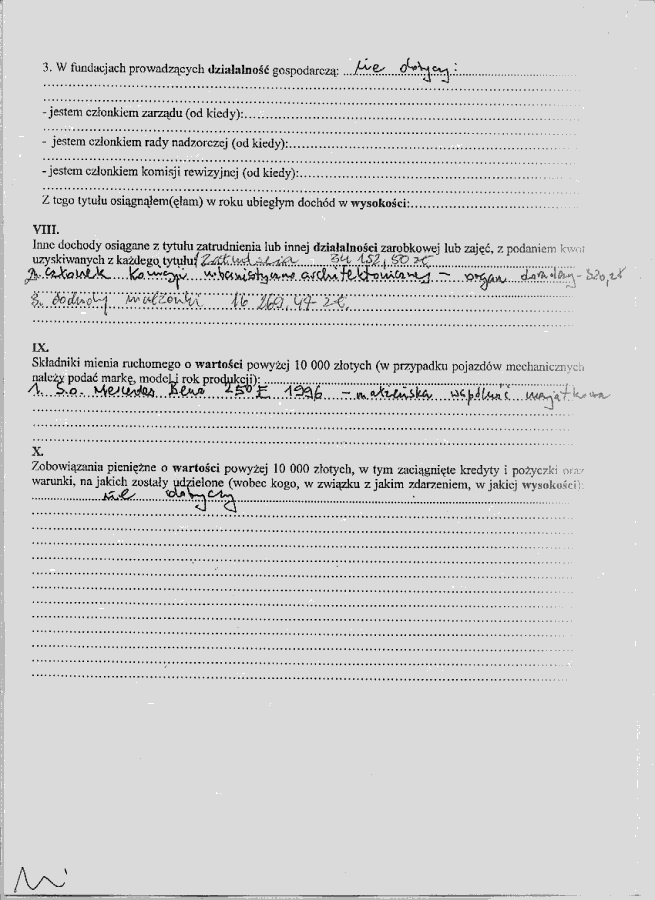 3. W fundacjach prowadzących działalność gospodarczą: nie dotyczy:
- jestem członkiem zarządu (od kiedy):
- jestem członkiem rady nadzorczej (od kiedy):
- jestem członkiem komisji rewizyjnej (od kiedy):
Z tego tytułu osiągnąłem(ęłam) w roku ubiegłym dochód w wysokości:
VIII.
Inne dochody osiągane z tytułu zatrudnienia lub innej działalności zarobkowej lub zajęć, z podaniem kwot
uzyskiwanych z każdego tytułu: Zatrudnienia - 34 152,50 zł
2. członek Komisji urbanistyczno architektonicznej - organ doradczy - 320,zł
3. dochody małżonki 16 269,47 zł.
IX.
Składniki mienia ruchomego o wartości powyżej 10 000 złotych (w przypadku pojazdów mechanicznych
należy podać markę, model i rok produkcji):
1. S.o. Mercedes Benz 250 E 1996 - małżeńska wspólność majątkowa
X.
Zobowiązania pieniężne o wartości powyżej 10 000 złotych, w tym zaciągnięte kredyty i pożyczki oraz
warunki, na jakich zostały udzielone (wobec kogo, w związku z jakim zdarzeniem, w jakiej wysokości):
nie dotyczy